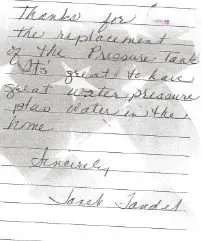 Thanks for
the replacement
of the Pressure Tank
It's great to have
great water pressure
plus water in the
home.
Sincerely,